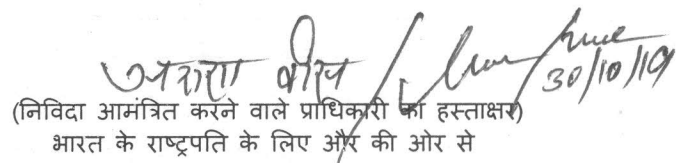 30/10/19
(निविदा आमंत्रित करने वाले प्राधिकारी का हस्ताक्षर)
भारत के राष्ट्रपति के लिए और की ओर से